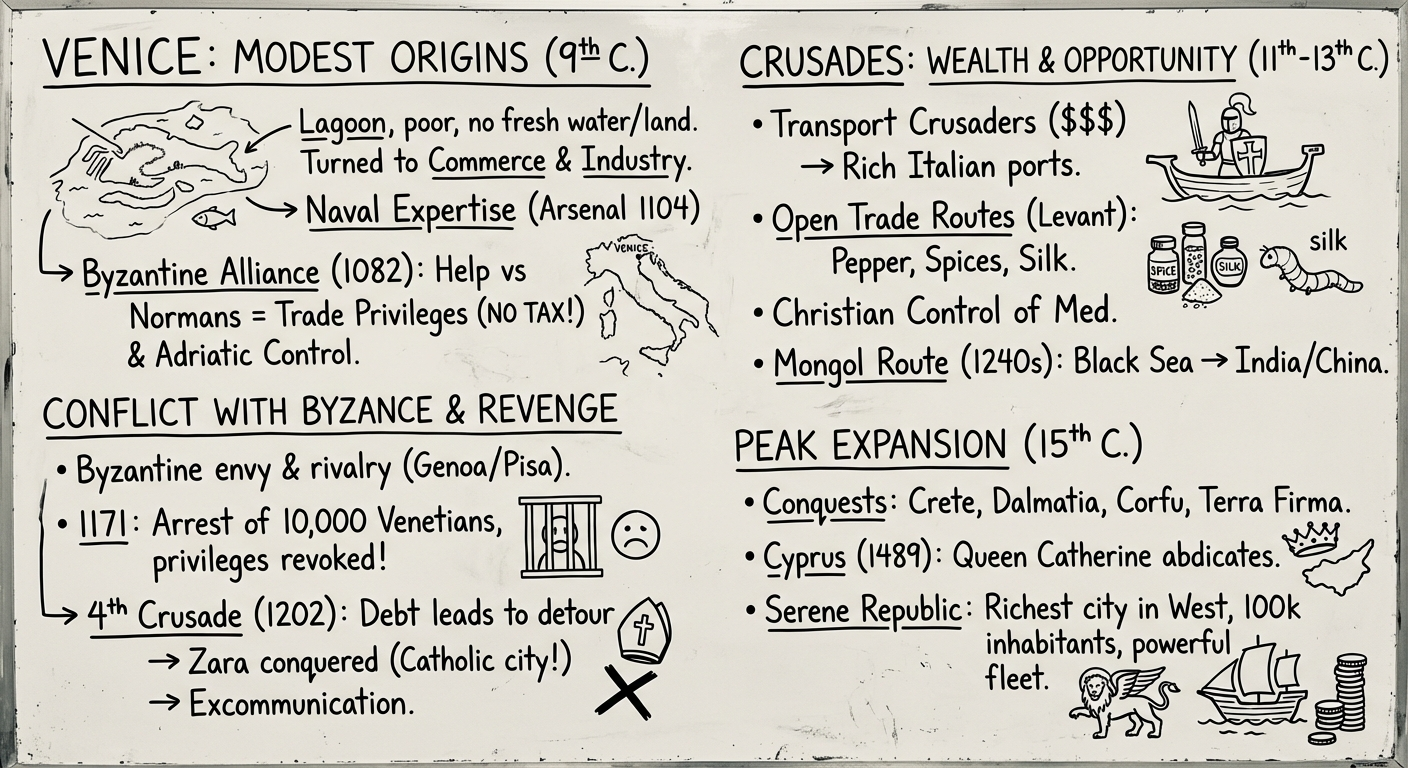 VENICE: MODEST ORIGINS (9th C.)
Lagoon, poor, no fresh water/land.
Turned to Commerce & Industry.
→ Naval Expertise (Arsenal 1104)
→ Byzantine Alliance (1082): Help vs
Normans = Trade Privileges (NO TAX!)
& Adriatic Control.
VENICE
CONFLICT WITH BYZANCE & REVENGE
• Byzantine envy & rivalry (Genoa/Pisa).
• 1171: Arrest of 10,000 Venetians,
privileges revoked!
→ 4th Crusade (1202): Debt leads to detour
→ Zara conquered (Catholic city!)
→ Excommunication.
CRUSADES: WEALTH & OPPORTUNITY (11th-13th C.)
• Transport Crusaders ($$$)
→ Rich Italian ports.
• Open Trade Routes (Levant):
Pepper, Spices, Silk.
SPICE
SILK
silk
• Christian Control of Med.
• Mongol Route (1240s): Black Sea → India/China.
PEAK EXPANSION (15th C.)
• Conquests: Crete, Dalmatia, Corfu, Terra Firma.
• Cyprus (1489): Queen Catherine abdicates.
• Serene Republic: Richest city in West, 100k
inhabitants, powerful
fleet.